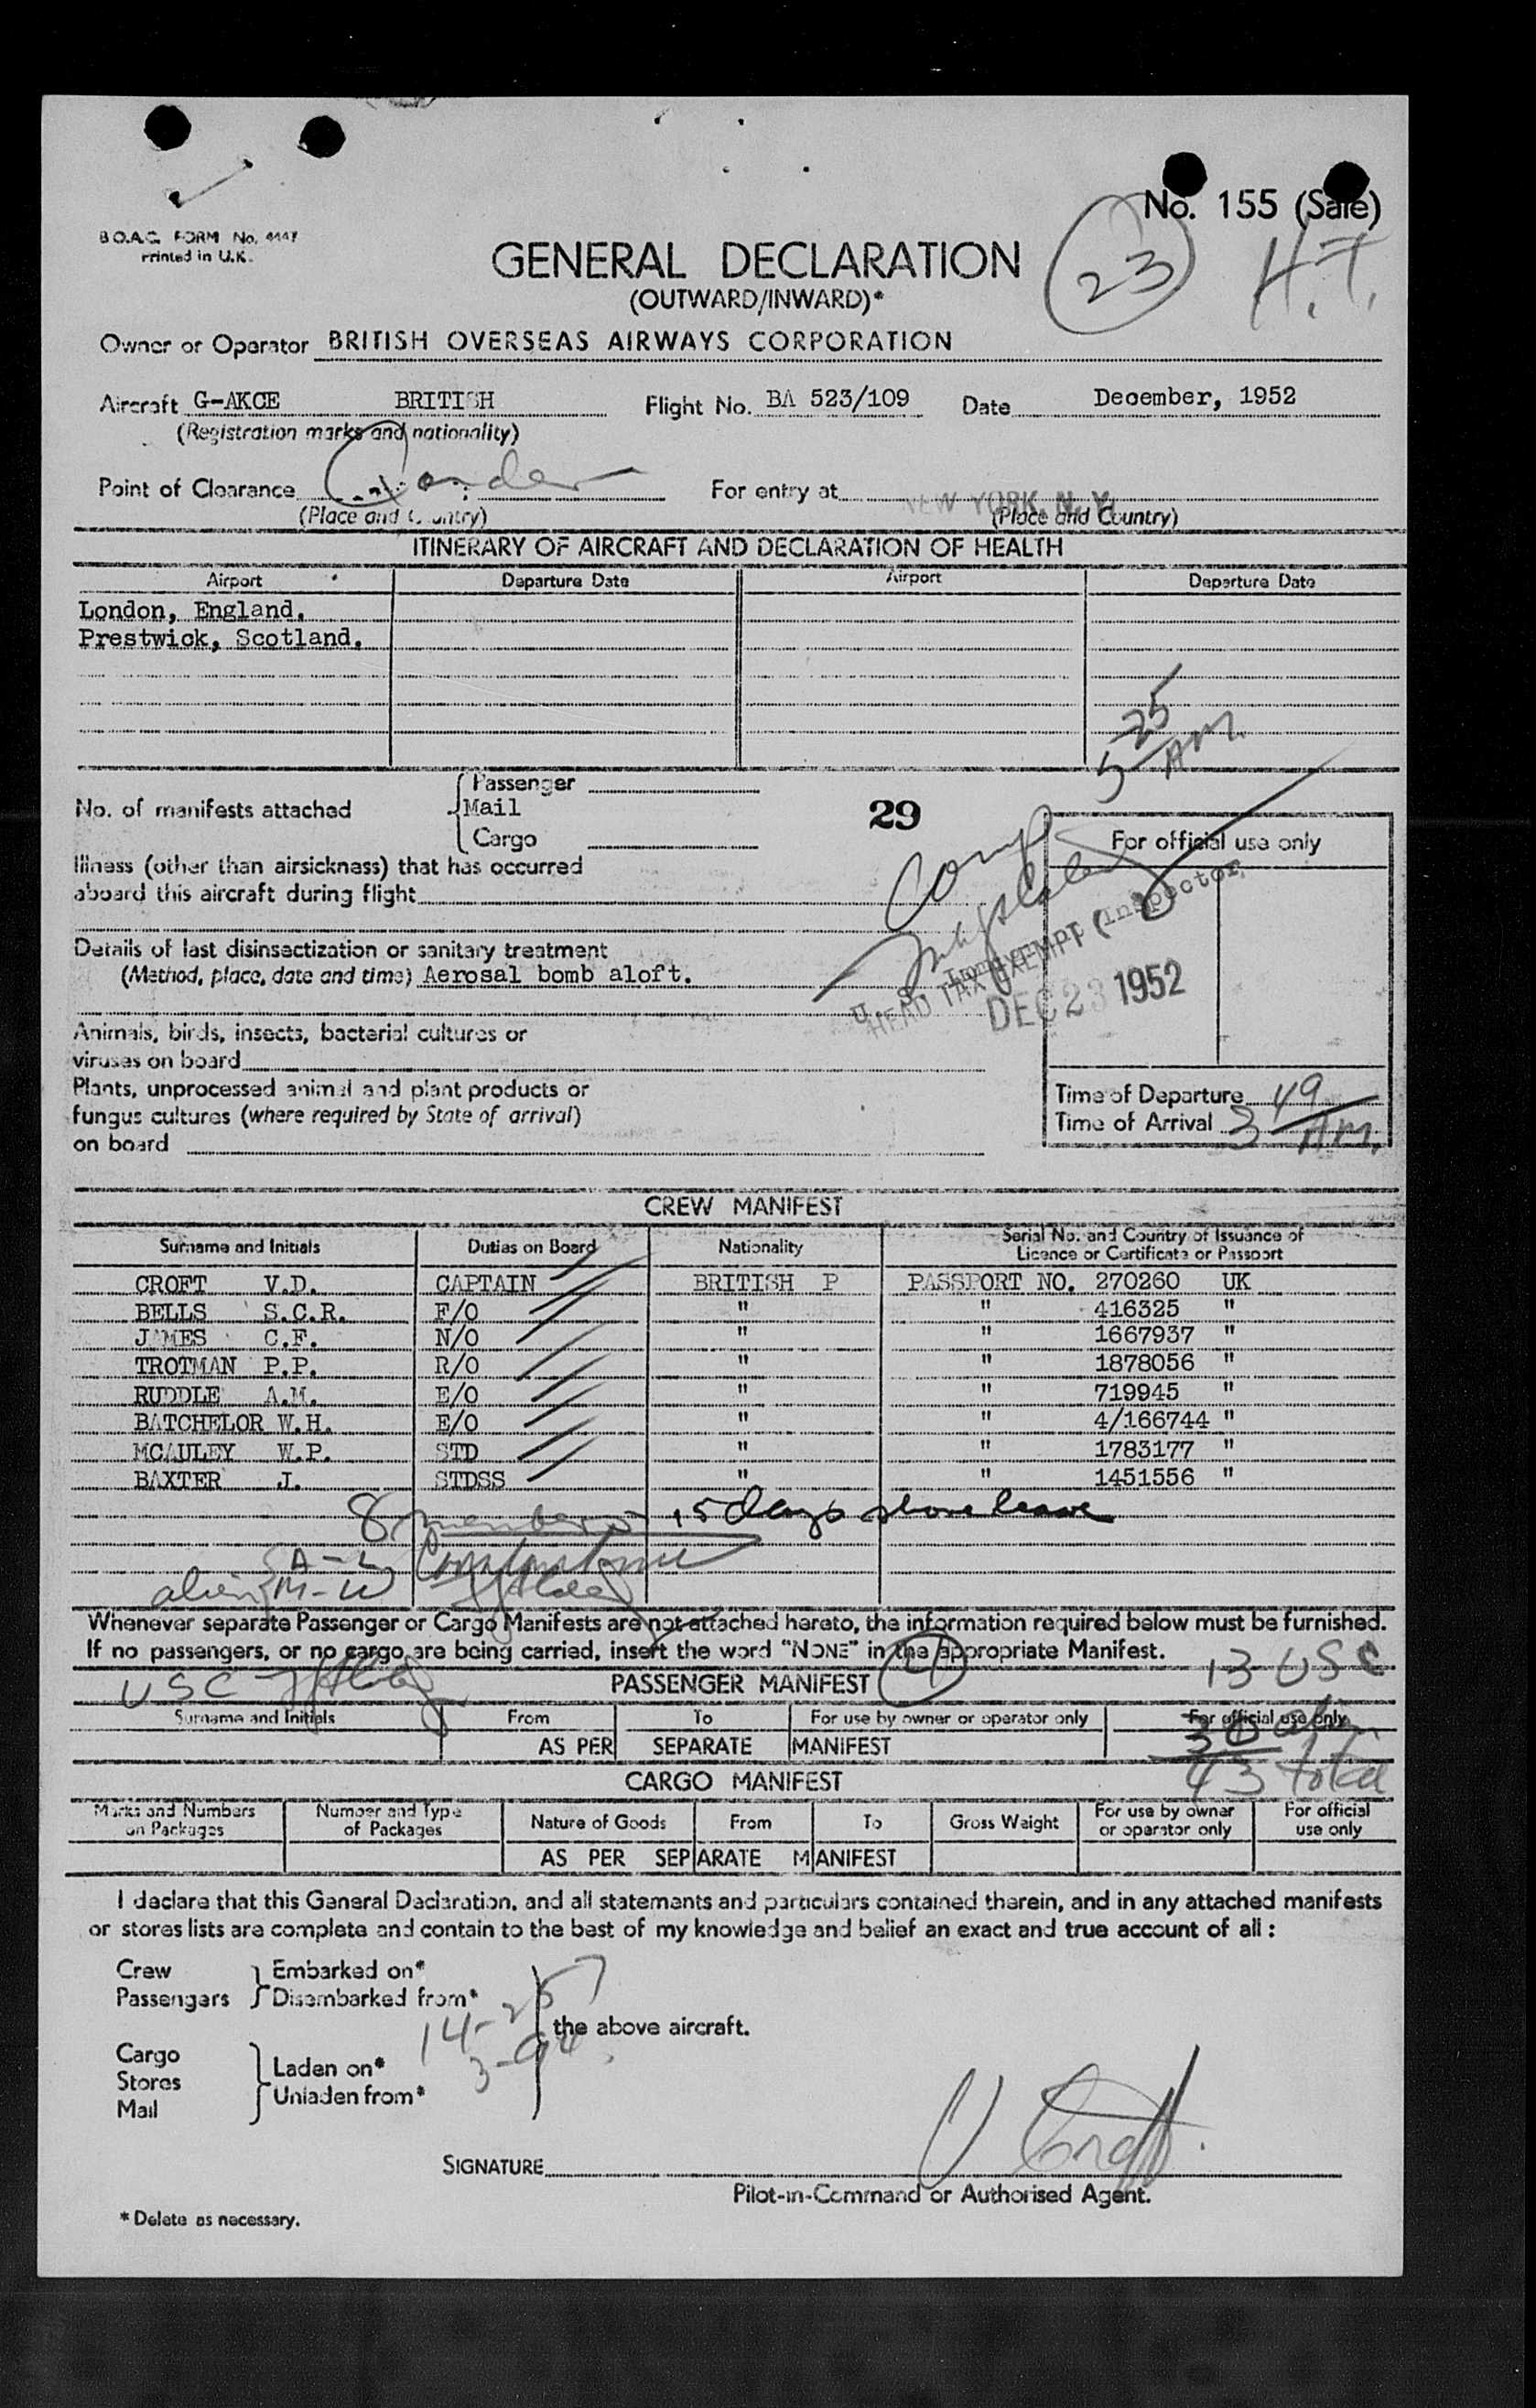 No. 155 (Sale)
B.O.A.C. FORM No. 4447
Printed in U.K.
GENERAL DECLARATION
(OUTWARD/INWARD)*
23 H.T.
Owner or Operator BRITISH OVERSEAS AIRWAYS CORPORATION
Aircraft G-AKCE BRITISH Flight No. BA 523/109 Date December, 1952
(Registration marks and nationality)
Point of Clearance Gander For entry at NEW YORK, N. Y.
(Place and Country) (Place and Country)
ITINERARY OF AIRCRAFT AND DECLARATION OF HEALTH
Airport Departure Date Airport Departure Date
London, England.
Prestwick, Scotland.
5 25 AM.
Passenger
No. of manifests attached Mail
Cargo
29
For official use only
Illness (other than airsickness) that has occurred
aboard this aircraft during flight
Comp
Details of last disinsectization or sanitary treatment
(Method, place, date and time) Aerosal bomb aloft.
U. S. Immigration Inspector
HEAD TAX EXEMPT (
DEC 23 1952
Animals, birds, insects, bacterial cultures or
viruses on board
Plants, unprocessed animal and plant products or
fungus cultures (where required by State of arrival)
on board
Time of Departure
Time of Arrival 3 49 AM.
CREW MANIFEST
Surname and Initials Duties on Board Nationality Serial No. and Country of Issuance of
Licence or Certificate or Passport
CROFT V.D. CAPTAIN BRITISH P PASSPORT NO. 270260 UK
BELLS S.C.R. F/O " " 416325 "
JAMES C.F. N/O " " 1667937 "
TROTMAN P.P. R/O " " 1878056 "
RUDDLE A.M. E/O " " 719945 "
BATCHELOR W.H. E/O " " 4/166744 "
MCAULEY W.P. STD " " 1783177 "
BAXTER J. STDSS " " 1451556 "
8 members 15 days shore leave
A-L
alien M-W
Whenever separate Passenger or Cargo Manifests are not attached hereto, the information required below must be furnished.
If no passengers, or no cargo, are being carried, insert the word "NONE" in the appropriate Manifest.
USC PASSENGER MANIFEST 13 USC
Surname and Initials From To For use by owner or operator only For official use only
30 alien
AS PER SEPARATE MANIFEST
43 total
CARGO MANIFEST
Marks and Numbers on Packages Number and Type of Packages Nature of Goods From To Gross Weight For use by owner or operator only For official use only
AS PER SEPARATE MANIFEST
I declare that this General Declaration, and all statements and particulars contained therein, and in any attached manifests
or stores lists are complete and contain to the best of my knowledge and belief an exact and true account of all :
Crew Embarked on*
Passengers Disembarked from*
the above aircraft.
Cargo
Stores Laden on*
Mail Unladen from*
SIGNATURE V Croft.
Pilot-in-Command or Authorised Agent.
* Delete as necessary.